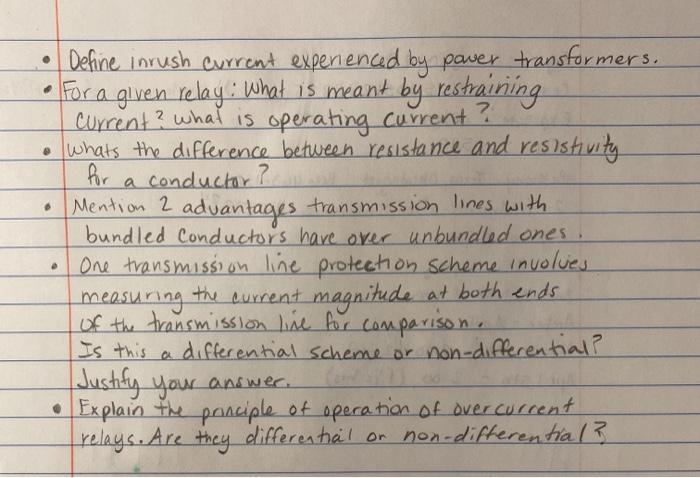 • Define inrush current experienced by power transformers.
• For a given relay: What is meant by restraining
current? what is operating current?
• Whats the difference between resistance and resistivity
for a conductor?
• Mention 2 advantages transmission lines with
bundled Conductors have over unbundled ones.
• One transmission line protection scheme involves
measuring the current magnitude at both ends
of the transmission line for comparison.
Is this a differential scheme or non-differential?
Justify your answer.
• Explain the principle of operation of overcurrent
relays. Are they differential or non-differential?